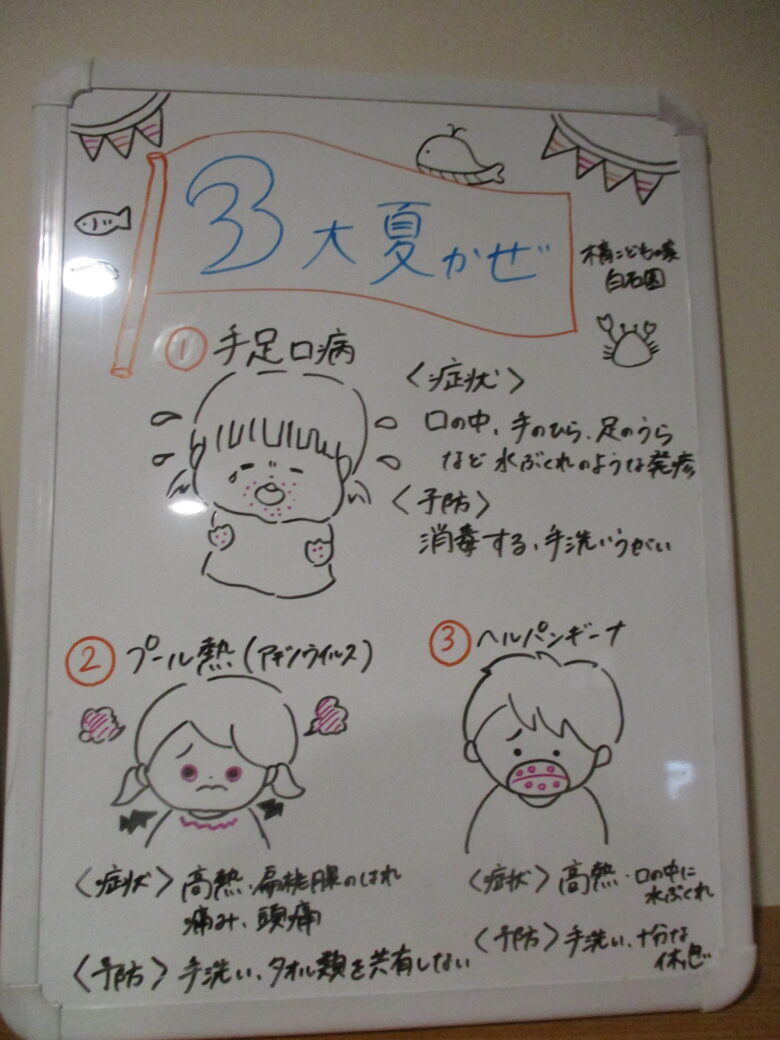 3大夏かぜ
こどもの家
白石園
① 手足口病
〈症状〉
口の中、手のひら、足のうら
など 水ぶくれのような発疹
〈予防〉
消毒する、手洗いうがい
② プール熱(アデノウイルス)
〈症状〉高熱・扁桃腺のはれ
痛み、頭痛
〈予防〉手洗い、タオル類を共有しない
③ ヘルパンギーナ
〈症状〉高熱・口の中に
水ぶくれ
〈予防〉手洗い、十分な
休息